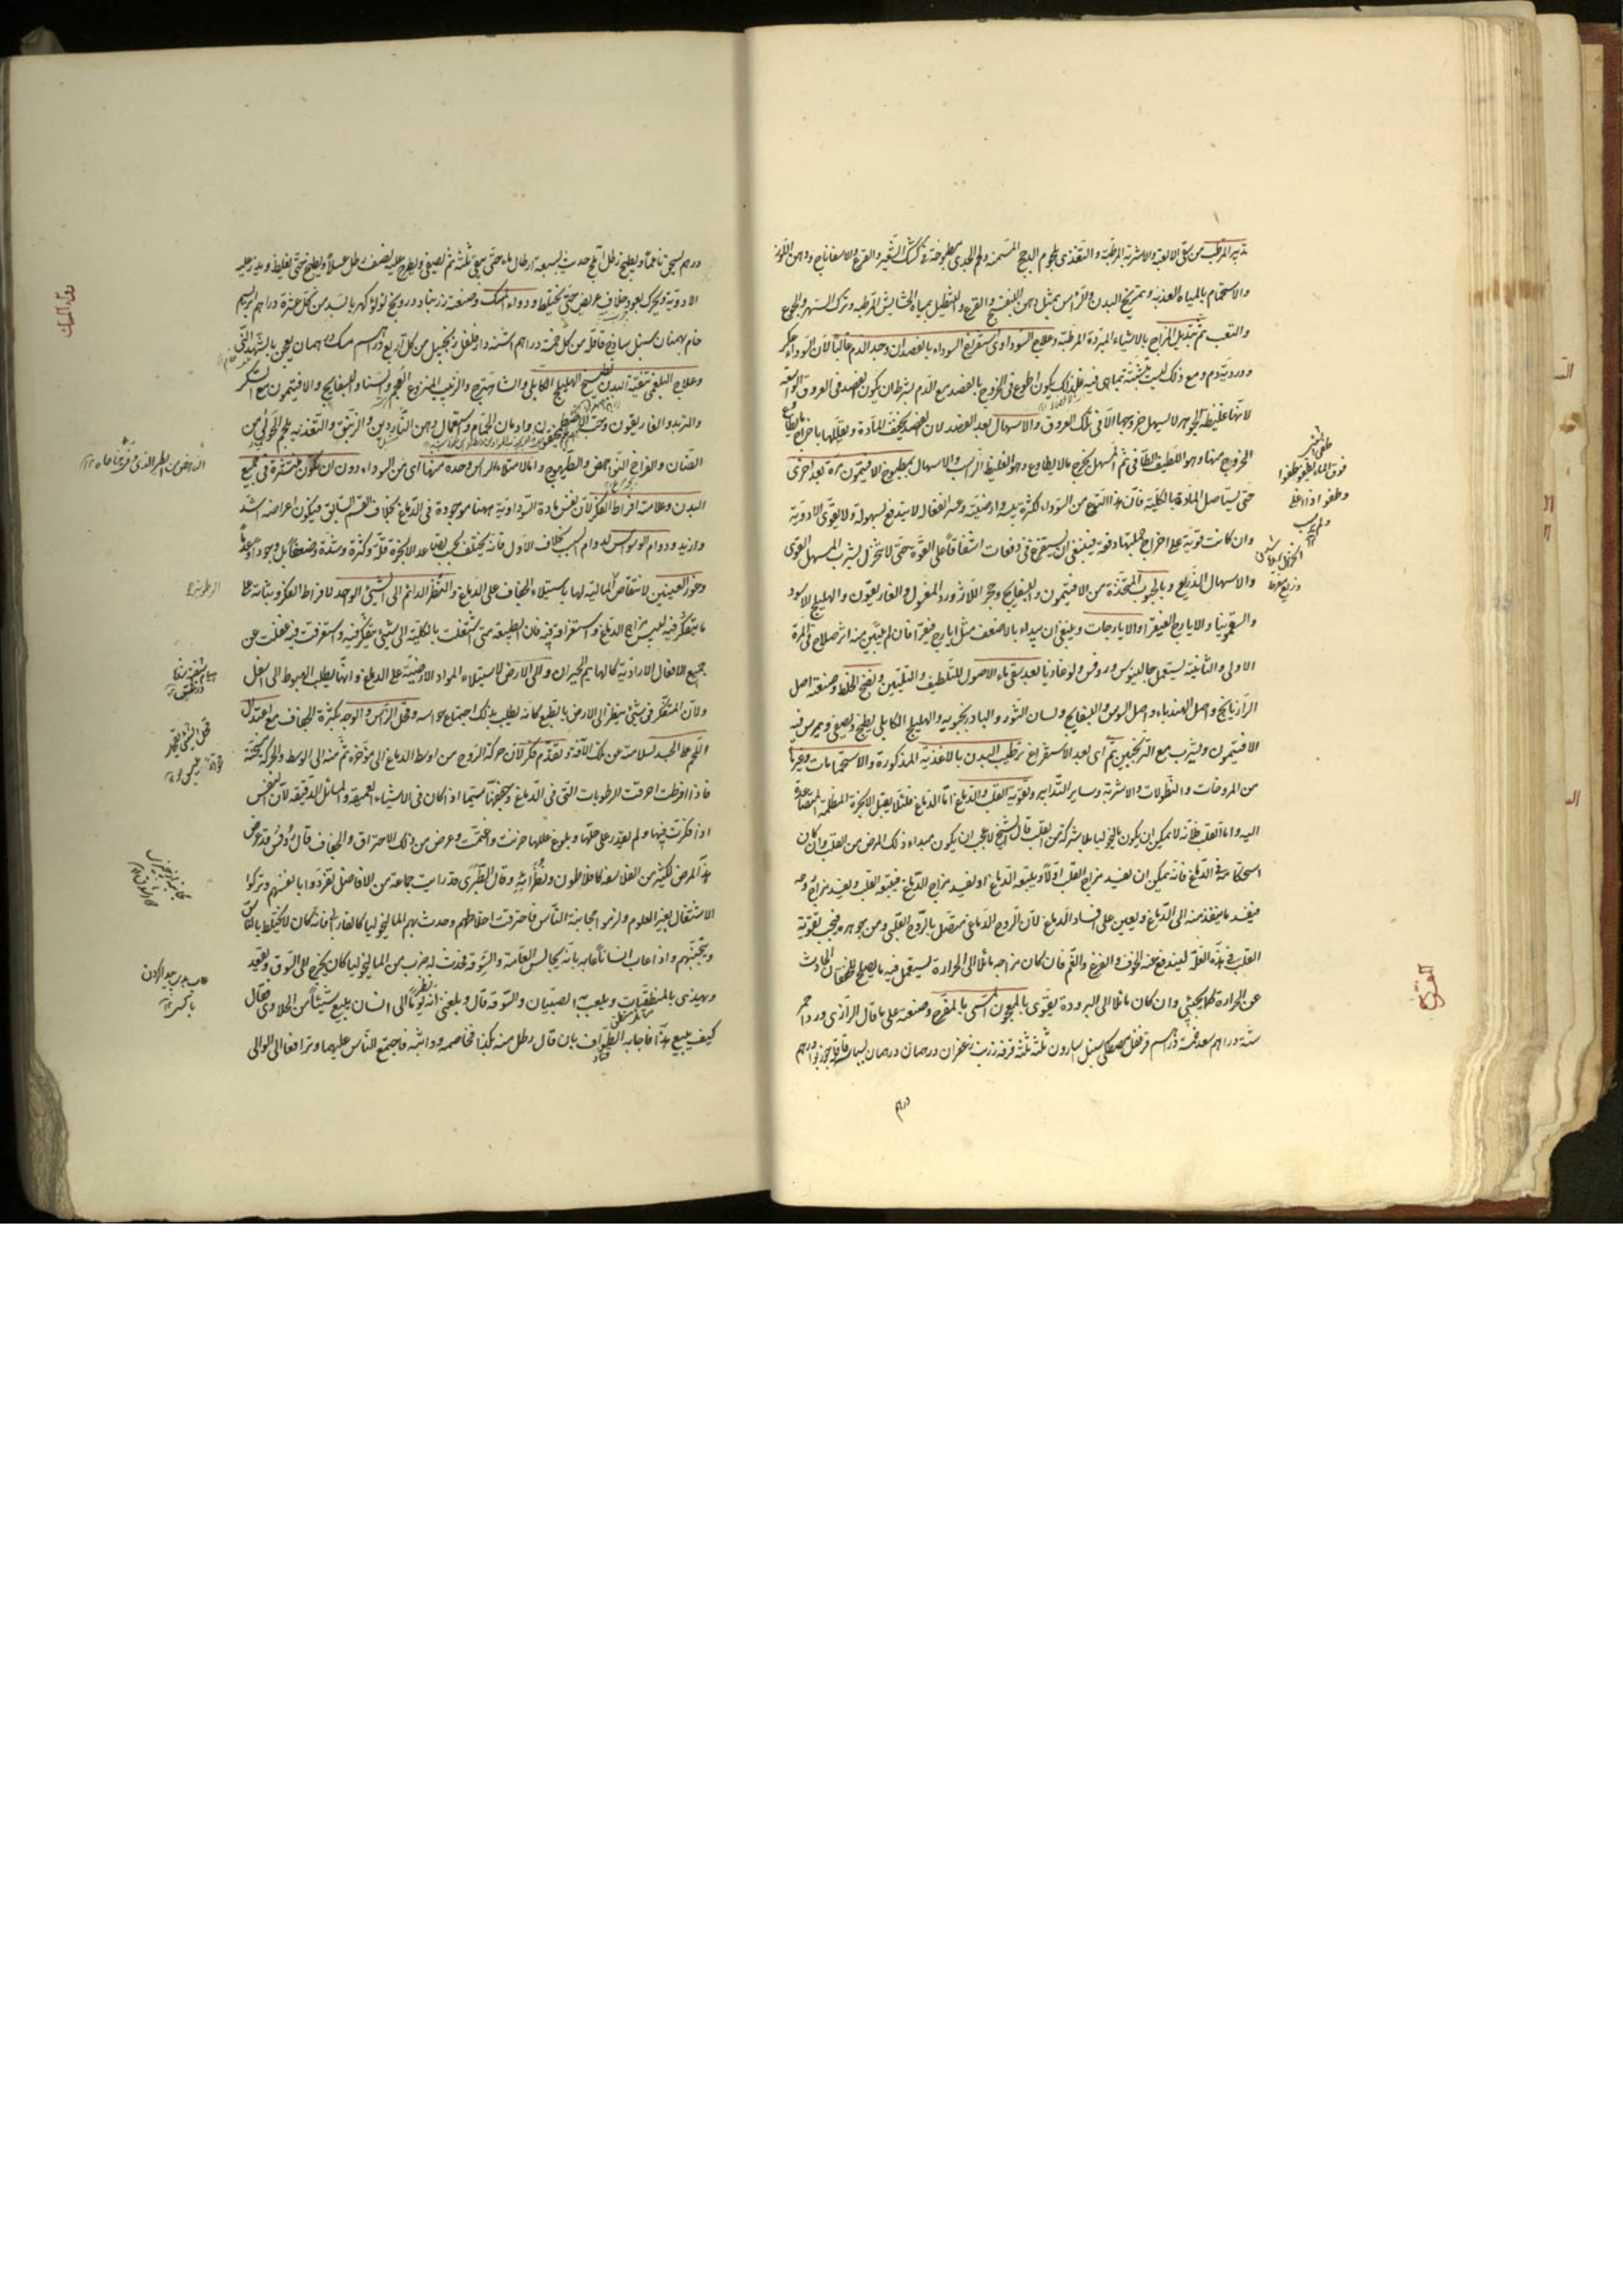 تدبير المرطب من سقى الالعبة والاشربة المرطبة والتغذى بلحوم الدجاج المسمنة ولحم الجدى مطبوخة فى كشك الشعير والقرع والاسفاناخ ودهن اللوز
والاستحمام بالمياه العذبة وتمريخ البدن والرأس بمثل دهن البنفسج والقرع والتنطيل بمياه الحشايش المرطبة وترك السهر والجوع
والتعب ثم تبديل المزاج بالاشياء المبردة المرطبة وعلاج السوداوى استفراغ السوداء بالفصد ان وجد الدم غالبا لان السوداء عكر
ودردية دم ومع ذلك ليست متشبثة بما هى فيه فلذلك يكون اطوع فى الخروج بالفصد مع الدم بشرط ان يكون الفصد فى العروق الواسعة
لانها غليظة الجوهر لا يسهل خروجها الا فى تلك العروق والاسهال بعد الفصد لان الفصد يخفف المادة ويقللها باخراج ما يطاوع
الخروج منها وهو اللطيف الطافى ثم المسهل يخرج ما لا يطاوع وهو الغليظ الراسب والاسهال بمطبوخ الافتيمون مرة بعد اخرى
حتى يستاصل المادة بالكلية فان هذا النوع من السوداء لكثرة يبسه وارضيته وعسر انفعاله لا يندفع بسهولة ولا يقوى الادوية
وان كانت قوية على اخراج جملتها دفعة فينبغى ان يستفرغ فى دفعات اشفاقا على القوة حتى لا تنخزل بشرب المسهل القوى
والاسهال الذريع وبالحبوب المتخذة من الافتيمون والبسفايج وحجر اللازورد المغسول والغاريقون والهليلج الاسود
والسقمونيا والايارج الفيقرا والايارجات وينبغى ان يبداء بالاضعف مثل ايارج فيقرا فان لم يتبين منه اثر صلاح فى المرة
الاولى والثانية يستعمل جالينوس وروفس ولوغاذيا بعد سقى ماء الاصول للتلطيف والتليين ونضج الخلط وصنعته اصل
الرازيانج واصل الهندباء واصل السوس والبسفايج ولسان الثور والبادرنجبويه والهليلج الكابلى يطبخ ويصفى ويمرس فيه
الافتيمون ويشرب مع الترنجبين ثم اى بعد الاستفراغ ترطيب البدن بالاغذية المذكورة والاستحمامات وغيرها
من المروخات والنطولات والاشربة وساير التدابير وتقوية القلب والدماغ اما الدماغ فلئلا يقبل الابخرة المظلمة المتصاعدة
اليه واما القلب فلانه لا يمكن ان يكون ماليخوليا بلا شركة من القلب قال الشيخ لا عجب ان يكون مبداء ذلك المرض من القلب وان كان
استحكامه فى الدماغ فانه يمكن ان يفسد مزاج القلب اولا ويتبعه الدماغ او يفسد مزاج الدماغ فيتبعه القلب ويفسد مزاج روحه
فيفسد ما ينفذ منه الى الدماغ ويعين على افساد الدماغ لان الروح الدماغى متصل بالروح القلبى ومن جوهره فيجب تقوية
القلب فى هذه العلة ليندفع عنه الخوف والفزع والغم فان كان مزاجه مائلا الى الحرارة يستعمل فيه ما يصلح للخفقان الحادث
عن الحرارة كما يجئ وان كان مائلا الى البرودة يقوى بالمعجون المسمى بالمفرح وصنعته على ما قال الرازى ورد احمر
ستة دراهم سعد خمسة دراهم قرنفل مصطكى سنبل اسارون ثلثة ثلثة قرفة زرنب زعفران درهمان درهمان بسباسة قاقلة جوزبوا درهم
درهم
طفى الشئ
فوق الماء يطفو طفوا
وطفوا اذا علا
ولم يرسب
درهم يسحق ناعما ويطبخ رطل املج حديث بسبعة ارطال ماء حتى يبقى ثلثه ثم يصفى ويطرح عليه نصف رطل عسلا ويطبخ حتى يغلظ ويذر عليه
الادوية ويحرك بعود خلاف عريض حتى يختلط ودواء المسك وصنعته زرنباد درونج لؤلؤ كهربا بسد من كل عشرة دراهم ابريسم
خام بهمنان سنبل ساذج قاقلة من كل خمسة دراهم اشنه دارفلفل زنجبيل من كل اربع دراهم مسك درهمان يعجن بالشهد النقى
وعلاج البلغمى تنقية البدن بطبيخ الهليلج الكابلى والشاهترج والزبيب المنزوع العجم والسنا والبسفايج والافتيمون مع السكر
والتربد والغاريقون وحب الاصطمخيقون وادمان الحمام واستعمال دهن الناردين والزنبق والتغذية بلحم الحولى من
الضان والفراخ النواهض والطيهوج واما لامتلاء الراس وحده منها اى من السوداء دون ان تكون منتشرة فى جميع
البدن وعلامته افراط الفكر لان نفس مادة السوداوية ههنا موجودة فى الدماغ بخلاف القسم السابق فيكون اعراضه اشد
وازيد ودوام الوسواس لدوام السبب بخلاف الاول فانه يختلف بحسب تصاعد الابخرة قلة وكثرة وشدة وضعفا بل وجودا وعدما
وغور العينين لانتقاص المائية لها باستيلاء الجفاف على الدماغ والنظر الدائم الى الشئ الواحد لافراط الفكر وثباته على
ما يتفكر فيه ليبس مزاج الدماغ واستغراقه فيه فان الطبيعة متى اشتغلت بالكلية الى شئ يتفكر فيه واستغرقت فيه غفلت عن
جميع الافعال الارادية كالهايم الحيران والى الارض لاستيلاء المواد الارضية على الدماغ وانها يطلب الهبوط الى اسفل
ولان المتفكر فى شئ ينظر الى الارض بالطبع كانه يطلب بذلك اجتماع حواسه وقحل الراس والوجه بكثرة الجفاف مع اعتدال
اللحم على الجسد لسلامته عن تلك الآفة وتقدم فكر لان حركة الروح من اوسط الدماغ الى مؤخره ثم منه الى الوسط والحركة مسخنة
فاذا افرطت احرقت الرطوبات التى فى الدماغ وجففها سيما اذا كان فى الاشياء العميقة والمسائل الدقيقة لان النفس
اذا فكرت فيها ولم يقدر على حلها وبلوغ عللها حزنت واغتمت وعرض من ذلك الاحتراق والجفاف قال روفس قد عرض
هذا المرض لكثير من الفلاسفة كافلاطون ونظرائه وقال الطبرى قد رايت جماعة من الافاضل تفردوا بانفسهم وتركوا
الاشتغال بغير العلوم ولزموا مجانبة الناس فاحترقت اخلاطهم وحدث بهم الماليخوليا كالفارابى فانه كان لا يختلط بالناس
ويتجنبهم واذا عاب انسانا عابه بانه يجالس العامة والسوقة فحدث له ضرب من الماليخوليا كان يخرج الى السوق ويقعد
ويهذى بالمنطقيات ويلعب به الصبيان والسوقة قال وبلغنى انه نظر يوما الى انسان يبيع شيئا من الحلاوى فقال
كيف يبيع هذا فاجابه الطواف بان قال رطل منه بكذا فخاصمه وواثبه فاجتمع الناس عليهما وترافعا الى الوالى
دواء المسك